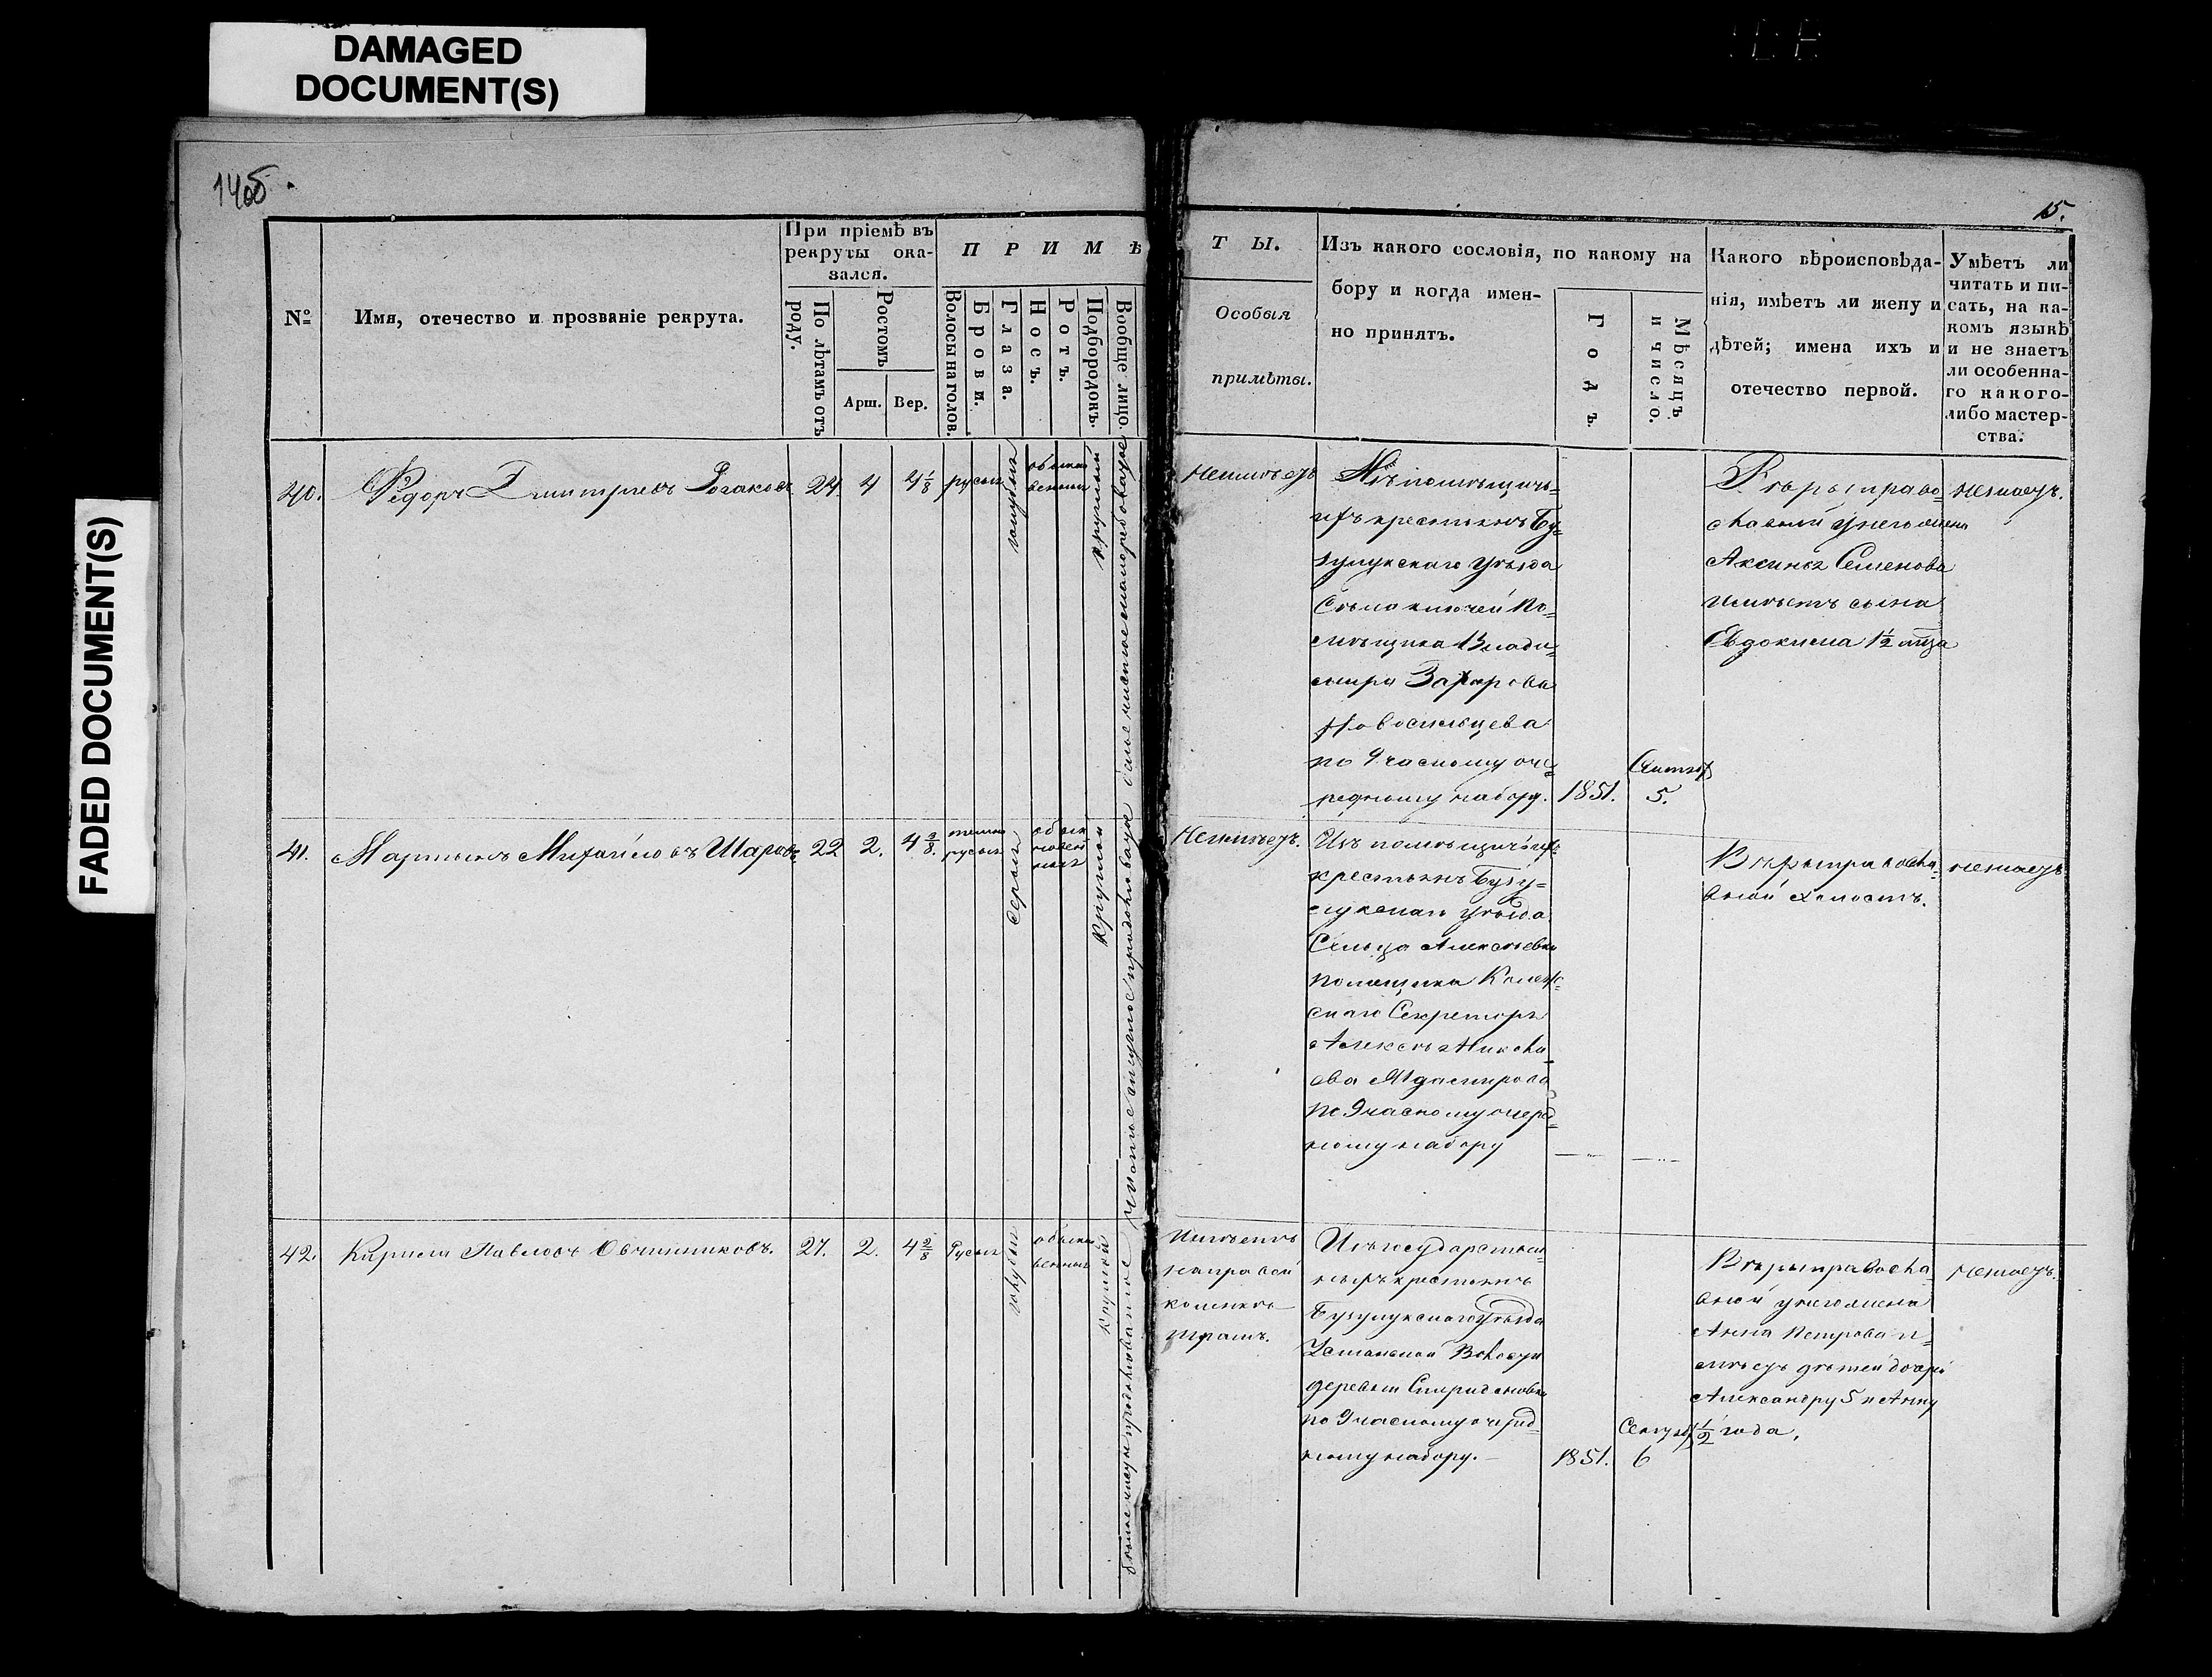 DAMAGED
DOCUMENT(S)
FADED DOCUMENT(S)
14об.
15.
№
Имя, отечество и прозваніе рекрута.
При пріемѣ въ
рекруты ока-
зался.
По лѣтамъ отъ
роду.
Ростомъ
Арш. Вер.
ПРИМѢ
Волосы на голов.
Брови.
Глаза.
Носъ.
Ротъ.
Подбородокъ.
Вообще лицо.
ТЫ.
Особыя
примѣты.
Изъ какого сословія, по какому на
бору и когда имен-
но принятъ.
Годъ.
Мѣсяцъ
и число.
Какого вѣроисповѣда-
нія, имѣетъ ли жену и
дѣтей; имена ихъ и
отечество первой.
Умѣетъ ли
читать и пи-
сать, на ка-
комъ языкѣ
и не знаетъ
ли особенна-
го какого-
либо мастер-
ства.
40. Федоръ Дмитріевъ 24 4 4 1/8 русые
голубые
обыкно
венные
круглый
неимѣетъ
Изъ помѣщичь-
ихъ крестьянъ Бу-
зулукскаго уѣзда
по-
мѣщика Влади-
мира
Новосильцева
по 9 часному оче-
редному набору. 1851. 5.
Вѣры право-
славной у него жена
Аксинья Семенова
имѣетъ сына
Евдокима 1½
незнаетъ.
41. Мартынъ Михайловъ Шаровъ 22 2. 4 2/8.
темно
русые
серые
обык
новен
ные
круглый
Неимѣетъ.
Изъ помѣщичьихъ
крестьянъ Бузу-
лукскаго уѣзда
Сельца Алексѣевки
помѣщика Коллеж-
скаго Секретаря
Алексѣя Никола-
ева
по 9 часному очеред-
ному набору
Вѣры правосла-
вной холостъ.
незнаетъ
42. Кирила Павловъ Овчинниковъ. 27. 2. 4 2/8 Русые
голубые
обыкно
венные
круглый
Имѣетъ
направой
коленкѣ
шрамъ.
Изъ государствен-
ныхъ крестьянъ
Бузулукскаго уѣзда
Волости
деревни Спиридоновки
по 9 часному очеред-
ному набору. 1851. 6
Вѣры правосла-
вной у него жена
Анна Петрова и-
мѣетъ дѣтей дочерей
Александру 5 и Анну
½ года.
незнаетъ.